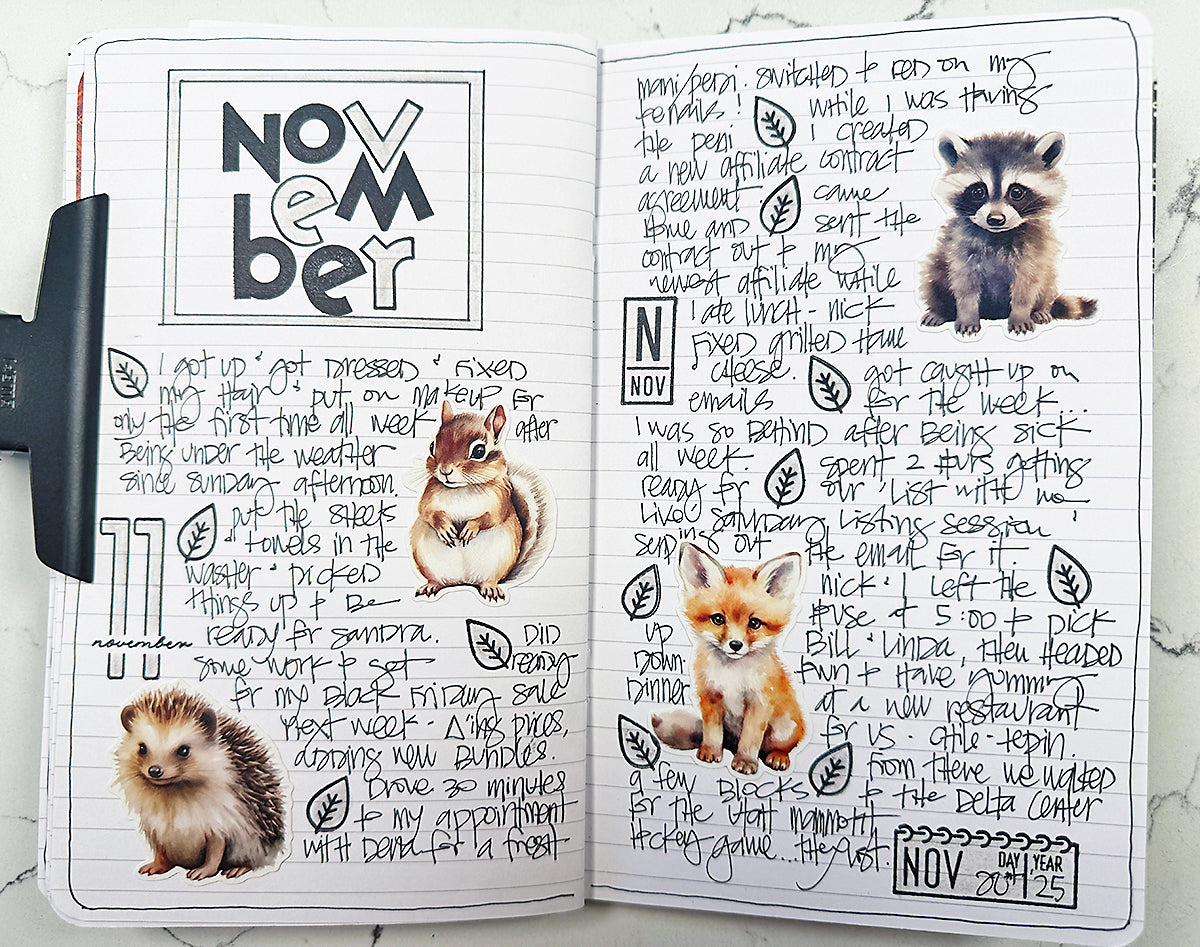 NOV
eM
ber
I got up & got Dressed & Fixed
my Hair & put on makeup for
only the first time all week after
Being under the weather
since sunday afternoon.
put the sheets
& towels in the
washer & picked
things up to Be
ready for sandra. DID
some work to get ready
for my Black Friday sale
next week - Δ'ing prices,
adding new Bundles.
Drove 30 minutes
to my appointment
with Dena for a fresh
11
november
mani/pedi. switched to red on my
toenails! While I was Having
the pedi I created
a new affiliate contract
agreement came
Home and sent the
contract out to my
newest affiliate while
I ate lunch - nick
Fixed grilled Ham
& cheese. got caught up on
emails for the week...
N
NOV
I was so Behind after Being sick
all week. spent 2 Hours getting
ready for our 'List with me
Live' saturday Listing session &
sending out the email for it.
nick & I left the
House at 5:00 to pick
up Bill & Linda, then Headed
Down town to Have yummy
Dinner at a new restaurant
for us - chile-tepin.
From there we walked
a few Blocks to the Delta Center
for the Utah mammoth
Hockey game... they lost.
NOV DAY YEAR
20th '25